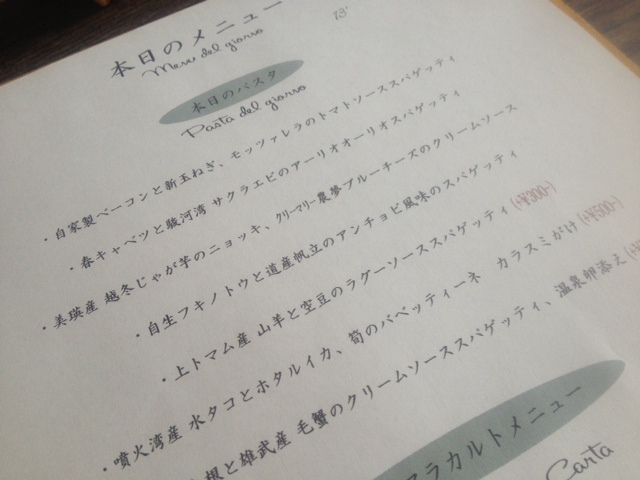 本日のメニュー
Menu del giorno
本日のパスタ
Pasta del giorno
・自家製ベーコンと新玉ねぎ、モッツァレラのトマトソーススパゲッティ
・春キャベツと駿河湾 サクラエビのアーリオオーリオスパゲッティ
・美瑛産 越冬じゃが芋のニョッキ、クリーマリー農夢ブルーチーズのクリームソース
・自生フキノトウと道産帆立のアンチョビ風味のスパゲッティ
・上トマム産 山羊と空豆のラグーソーススパゲッティ(+¥300-)
・噴火湾産 水タコとホタルイカ、筍のバベッティーネ カラスミがけ(+¥500-)
根と雄武産 毛蟹のクリームソーススパゲッティ、温泉卵添え
アラカルトメニュー
Carta